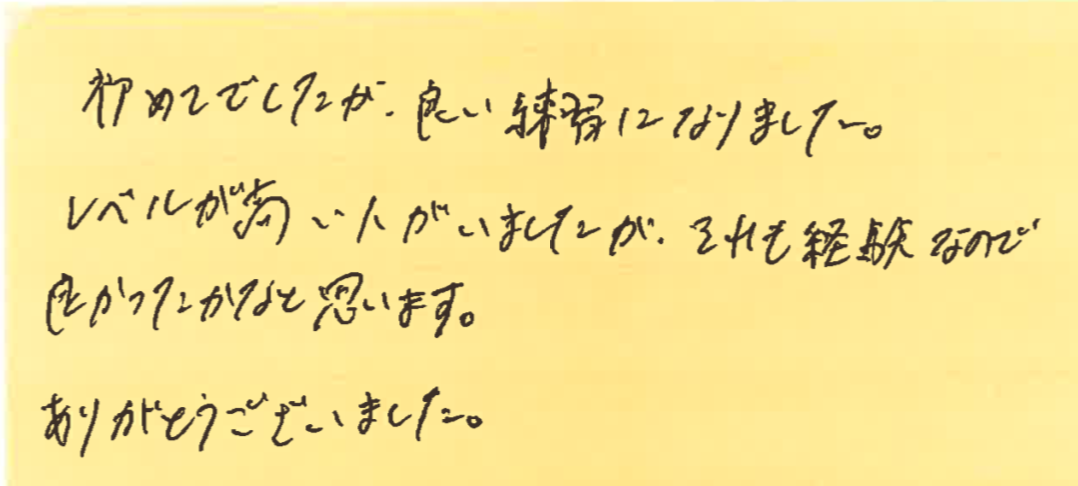 初めてでしたが、良い練習になりました。
レベルが高い人がいましたが、それも経験なので
良かったかなと思います。
ありがとうございました。